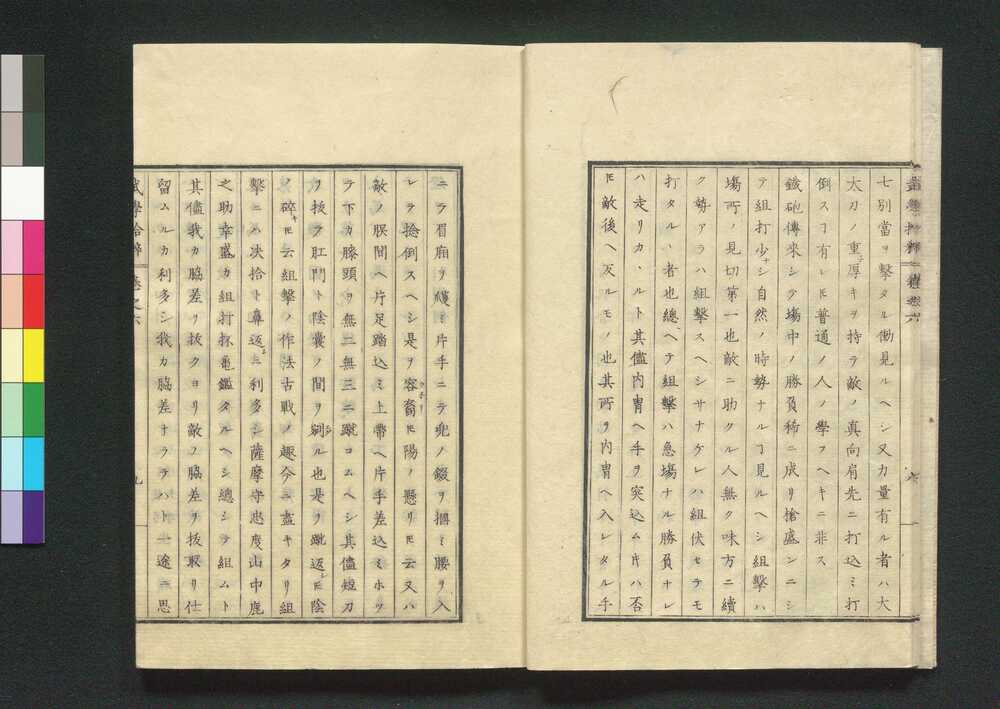 七別當ヲ擊タル働見ルヘシ又力量有ル者ハ大
太刀ノ重厚キヲ持テ敵ノ真向肩先ニ打込ミ打
倒スヿ有レ𪜈普通ノ人ノ學フヘキニ非ス
鐵砲傳來シテ塲中ノ勝負稀ニ成リ槍盛ンニシ
テ組打少ナシ自然ノ時勢ナルヿ見ルヘシ組擊ハ
塲所ノ見切第一也敵ニ助クル人無ク味方ニ續
ク勢アラハ組擊スヘシサナケレハ組伏セテモ
打タルヽ者也總ヘテ組擊ハ急塲ナル勝負ナレ
ハ走リカヽルト其儘内冑ヘ手ヲ突込ム片ハ否
𪜈敵後ヘ反ルモノ也其所ヲ内冑ヘ入レタル手
ニテ眉廂ヲ攫ミ片手ニテ兜ノ錣ヲ摑ミ腰ヲ入
レテ捻倒スヘシ是ヲ容𪜈陽ノ懸リ𪜈云又ハ
敵ノ股間ヘ片足踏込ミ上帶ヘ片手差込ミホツ
テ下カ膝頭ヲ無二無三ニ蹴コムヘシ其儘短刀
ヲ拔テ肛門ト陰嚢ノ間ヲ刳ル也是ヲ蹴返シ𪜈陰
ノ碎キ𪜈云組擊ノ作法古戰ノ趣今ニ盡キタリ組
擊ニハ決拾ト鼻返ニ利多シ薩摩守忠度山中鹿
之助幸盛カ組打抔亀鑑タルヘシ總シテ組ムト
其儘我カ脇差リ拔クヨリ敵ノ脇差ヲ拔取リ仕
留ムルカ利多シ我カ脇差ナラテハト一途ニ思
武學拾粹 卷之六 九